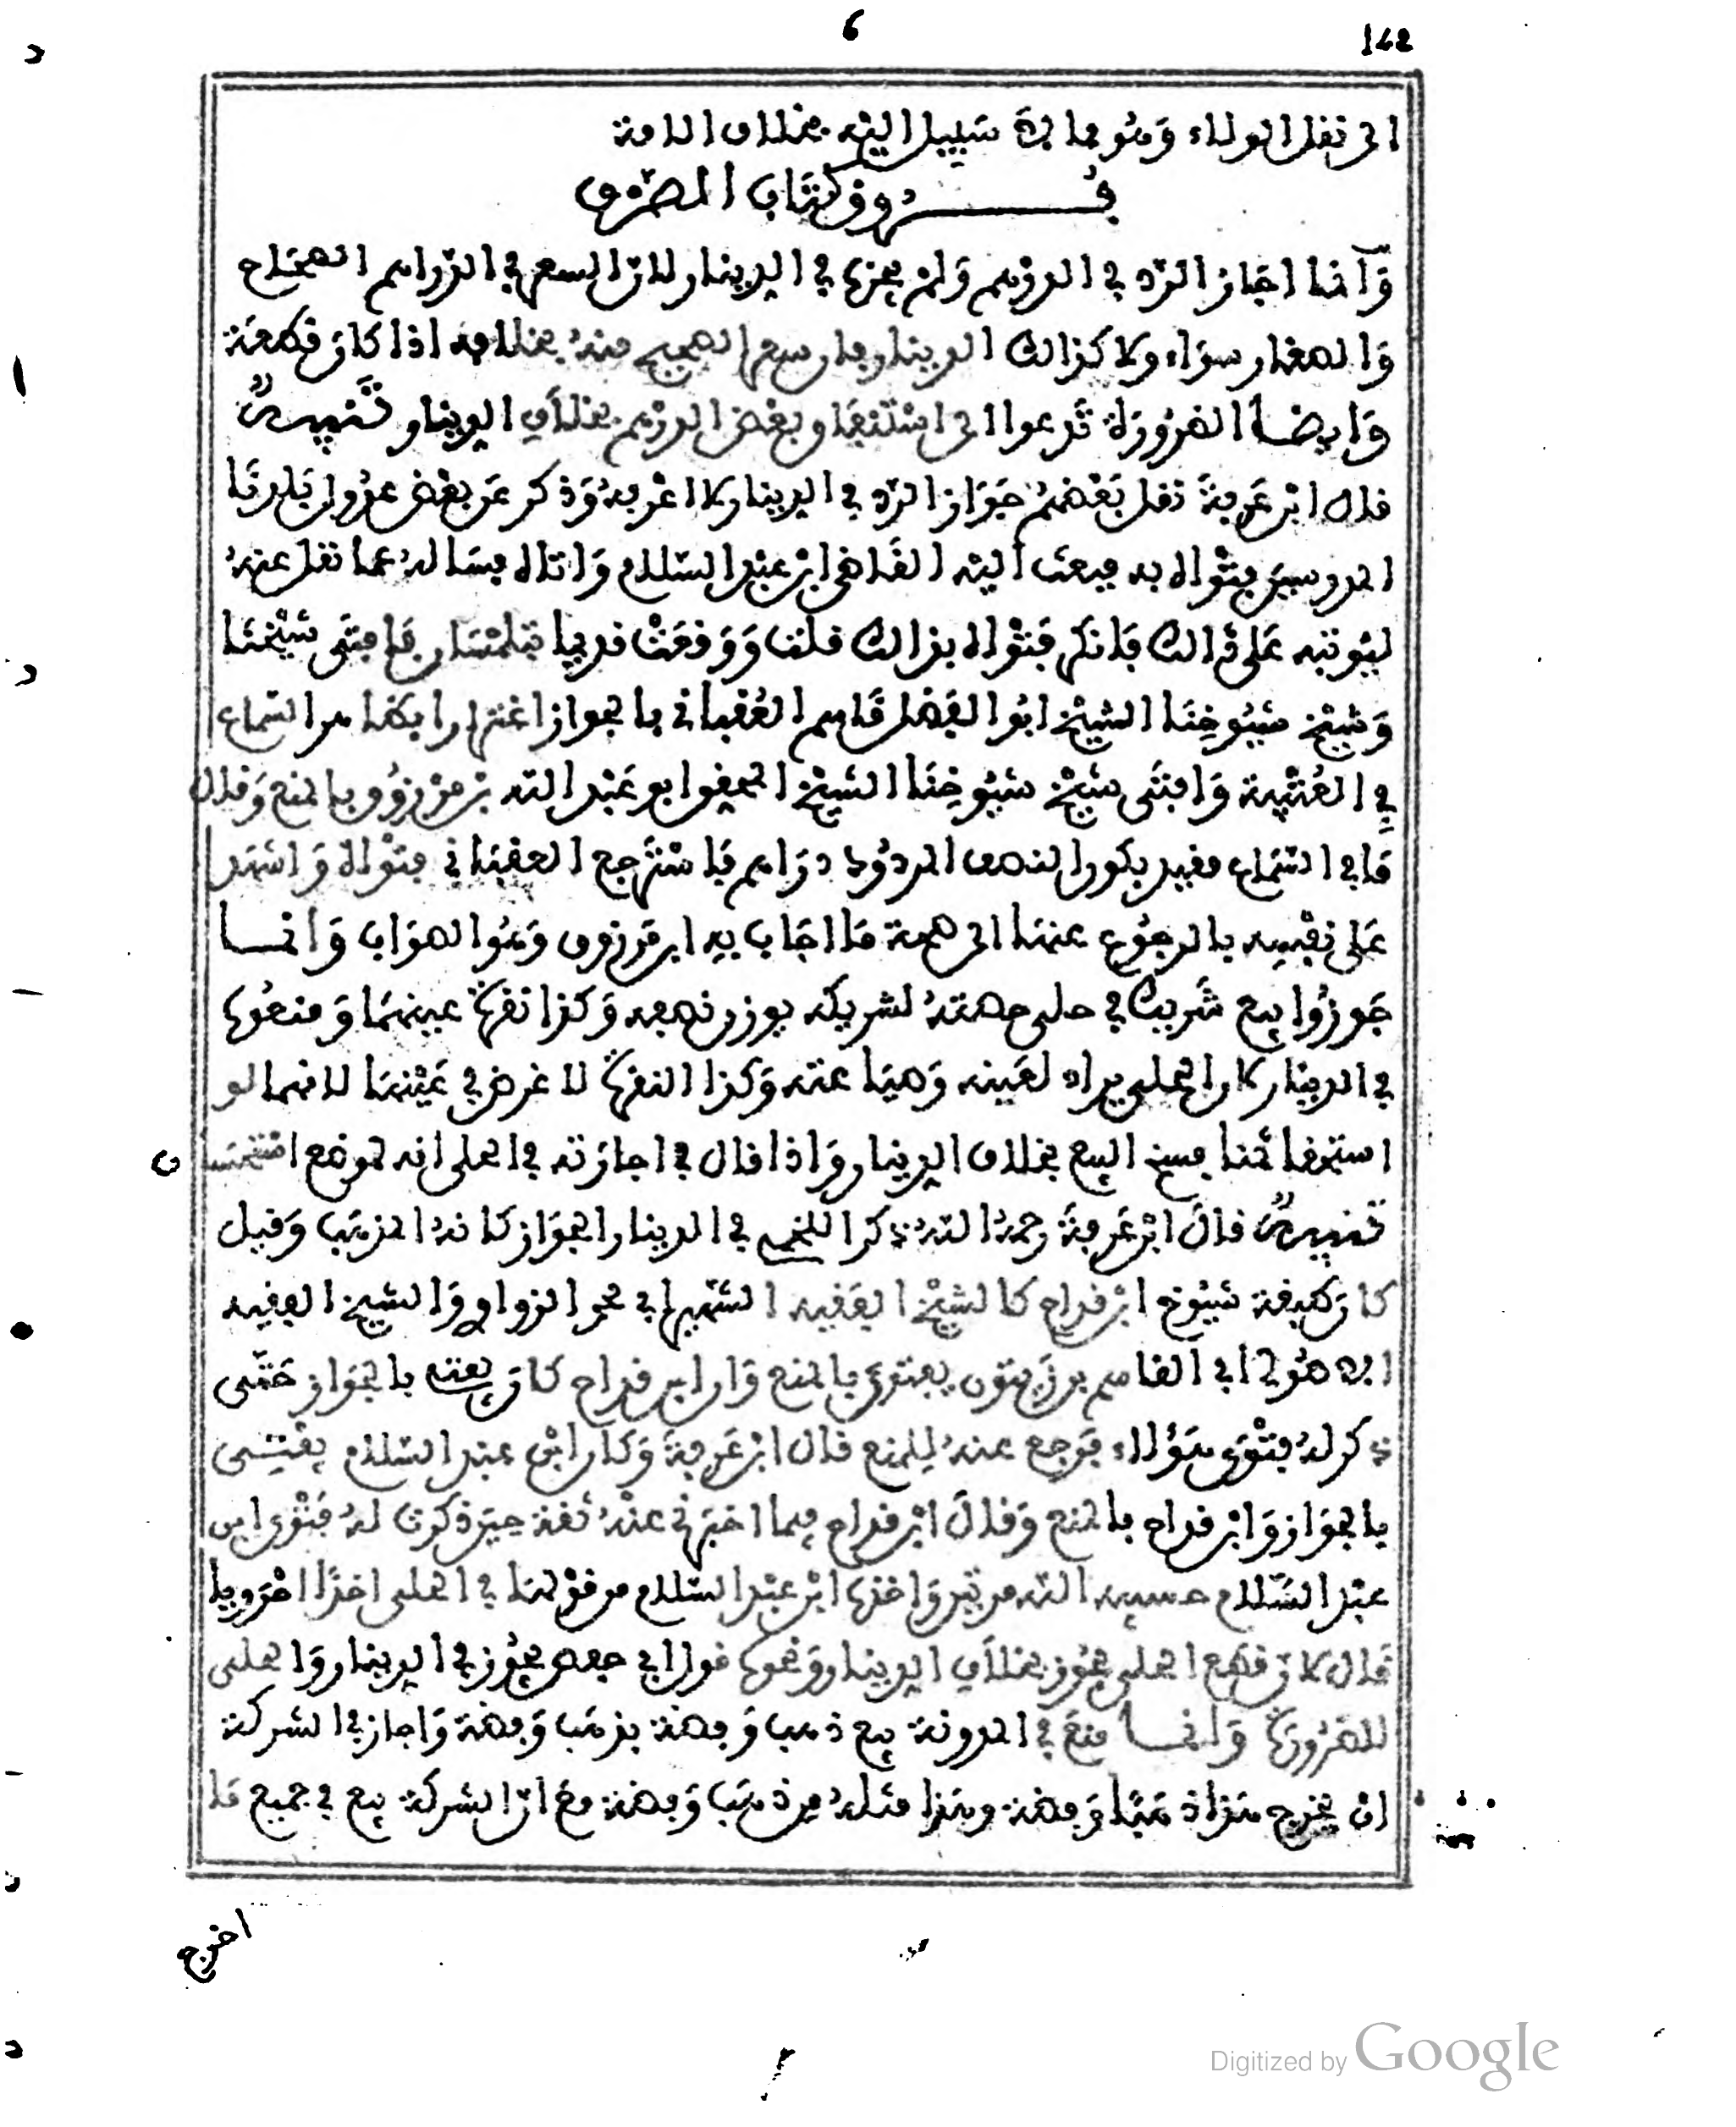 142
6
الى نقل الولاء وهو مما لا سبيل اليه بخلاف الامة
فروق كتاب الصرف
وانما اجاز الرد في الدرهم ولم يجزها في الدينار لان السعر في الدراهم الصحاح
والصغار سواء ولا كذالك الدينار فان سعر الصحيح منه بخلافه اذا كان قطعة
وايضا الضرورة تدعوا الى استنفاق بعض الدرهم بخلاف الدينار تنبيه
قال ابن عرفة نقل بعضهم جواز الرد في الدينار لا اعرفه وذكر عن بعض عدول بلدنا
المدرسين فتواه به فبعث اليه القاضي ابن عبد السلام واتاه فساله عما نقل عنه
ليوقبه على ذالك فانكر فتواه بذالك قلت ووقعت قديما بتلمسان فافتى شيخنا
وشيخ شيوخنا الشيخ ابو الفضل قاسم العقباني بالجواز اغترارا بظاهر السماع
في العتبية وافتى شيخ شيوخنا الشيخ الحفيد ابو عبد الله بن مرزوق بالمنع وقال
ما في السماع مقيد بكون النصف المردود دراهم فاسترجع العقباني فتواه واشهد
على نفسه بالرجوع عنها الى صحة ما اجاب به ابن مرزوق وهو الصواب وانما
جوزوا بيع شريك في حلي حصته لشريكه بوزن نصفه وكذا نقرة عينهما ومنعوها
في الدينار لان الحلي يراد لعينه وصياغته وكذا النقرة لا غرض في عينها لانهما لو
استحقا ثمنا فسخ البيع بخلاف الدينار واذا قال في اجازته في الحلي انه لموضع
تنبيه قال ابن عرفة رحمه الله ذكر اللخمي في الدينار الجواز كانه المذهب وقيل
كان طبقة شيوخ ابن قداح كالشيخ الفقيه الشهير ابي محمد الزواوي والشيخ الفقيه
ابي القاسم بن زيتون يفتون بالمنع وان ابن قداح كان يفتي بالجواز حتى
ذكر له فتوى هؤلاء فرجع عنه للمنع قال ابن عرفة وكان ابن عبد السلام يفتي
بالجواز وابن قداح بالمنع وقال ابن قداح فيما اخبرني عنه ثقة حين ذكرت له فتوى ابن
عبد السلام حسيبه الله من تبر واخذها ابن عبد السلام من قولها في الحلي اخذا احرويا
قال لان قطع الحلي يجوز بخلاف الدينار ونحوها قول ابي حفص يجوز في الدينار والحلي
للضرورة وانما منع في المدونة بيع ذهب وفضة بذهب وفضة واجاز في الشركة
ان يخرج هذا ذهبا وفضة وهذا مثله من ذهب وفضة مع ان الشركة بيع في جميع ما
اخرج
Digitized by Google